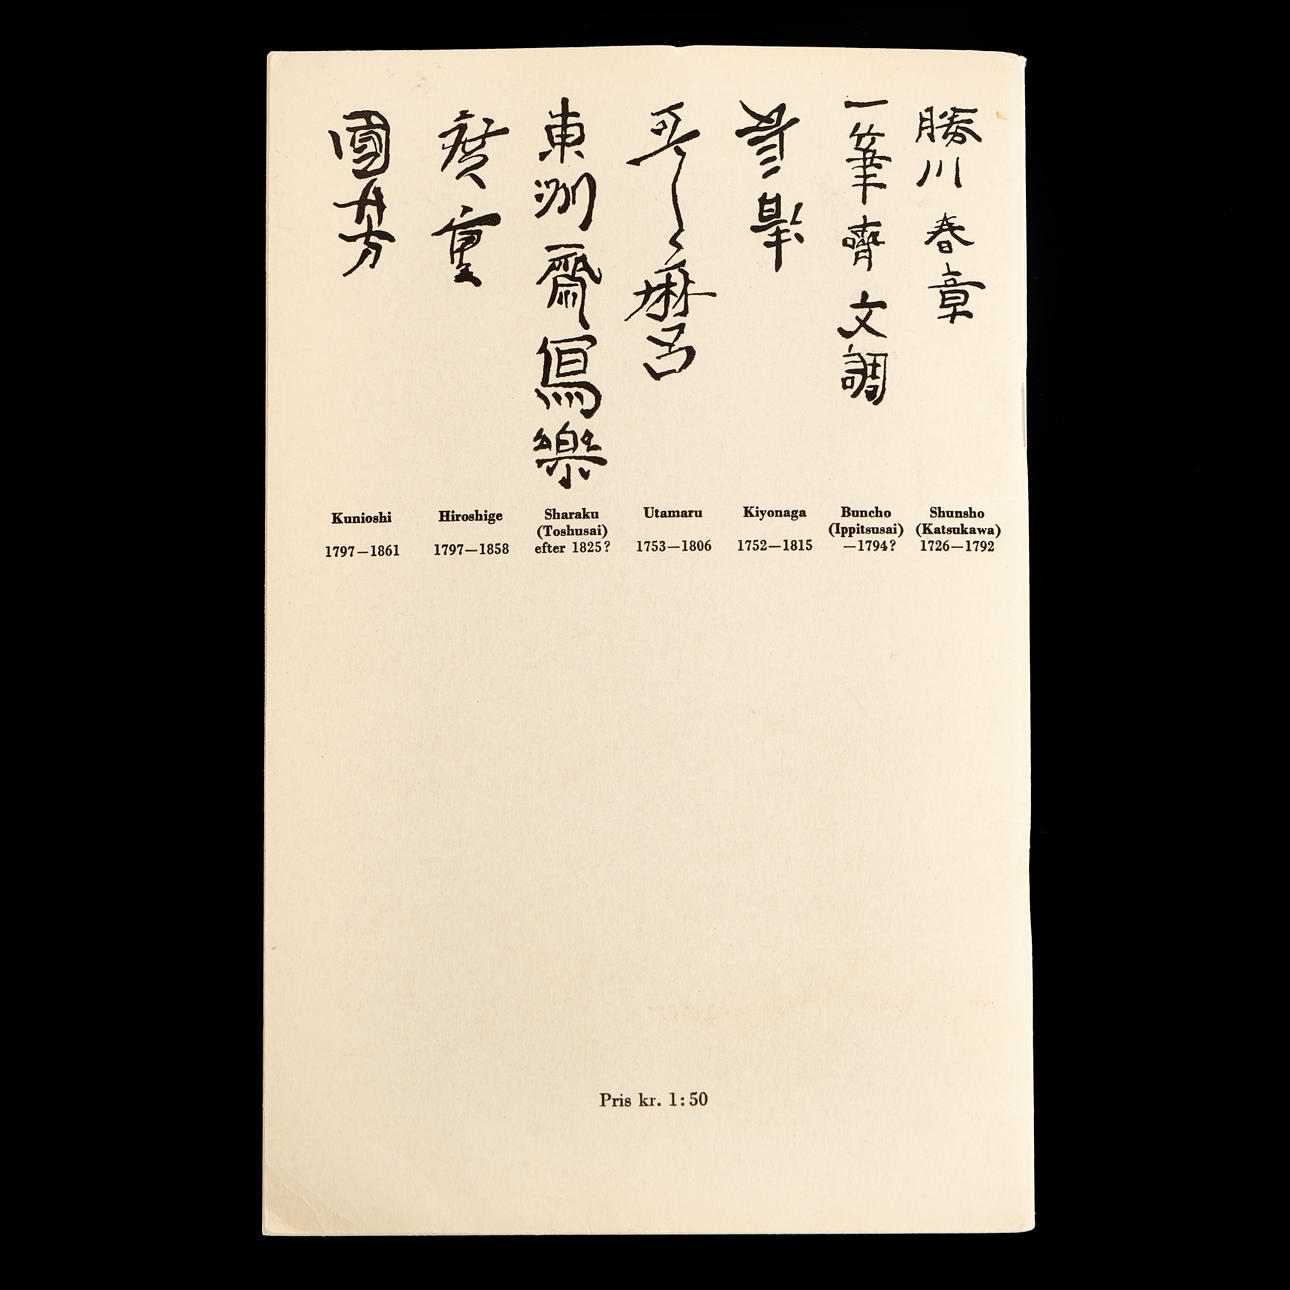 國芳
廣重
東洲齋寫樂
哥麿
清長
一筆齋文調
勝川春章
Kunioshi
1797—1861
Hiroshige
1797—1858
Sharaku
(Toshusai)
efter 1825?
Utamaru
1753—1806
Kiyonaga
1752—1815
Buncho
(Ippitsusai)
—1794?
Shunsho
(Katsukawa)
1726—1792
Pris kr. 1:50